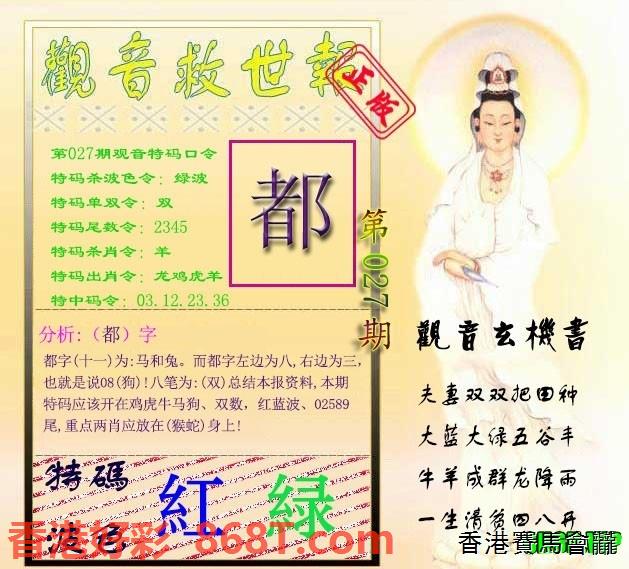 觀音救世報
正版
第027期观音特码口令
特码杀波色令：绿波
特码单双令：双
特码尾数令：2345
特码杀肖令：羊
特码出肖令：龙鸡虎羊
特中码令：03.12.23.36
都
第027期
分析:（都）字
都字(十一)为:马和兔。而都字左边为八,右边为三，
也就是说08(狗)!八笔为:(双)总结本报资料,本期
特码应该开在鸡虎牛马狗、双数，红蓝波、02589
尾,重点两肖应放在(猴蛇)身上!
觀音玄機書
夫妻双双把田种
大蓝大绿五谷丰
牛羊成群龙降雨
一生清贫四八开
特碼
波色
紅
绿
香港好彩 868T.com
香港賽馬會